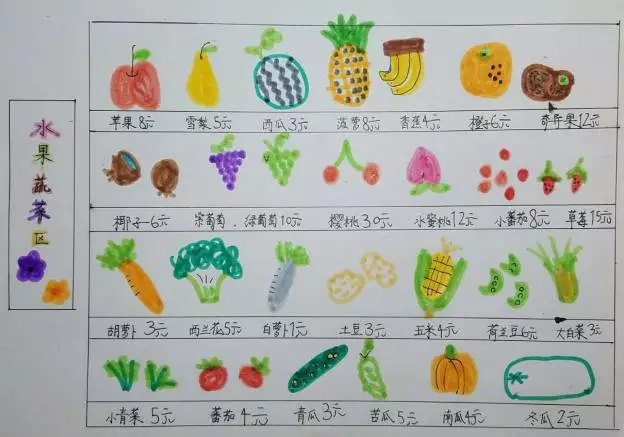 水果蔬菜区
苹果8元 雪梨5元 西瓜3元 菠萝8元 香蕉4元 橙子6元 奇异果12元
椰子6元 紫葡萄、绿葡萄10元 樱桃30元 水蜜桃12元 小番茄8元 草莓15元
胡萝卜3元 西兰花5元 白萝卜1元 土豆3元 玉米4元 荷兰豆6元 大白菜3元
小青菜5元 番茄4元 青瓜3元 苦瓜5元 南瓜4元 冬瓜2元